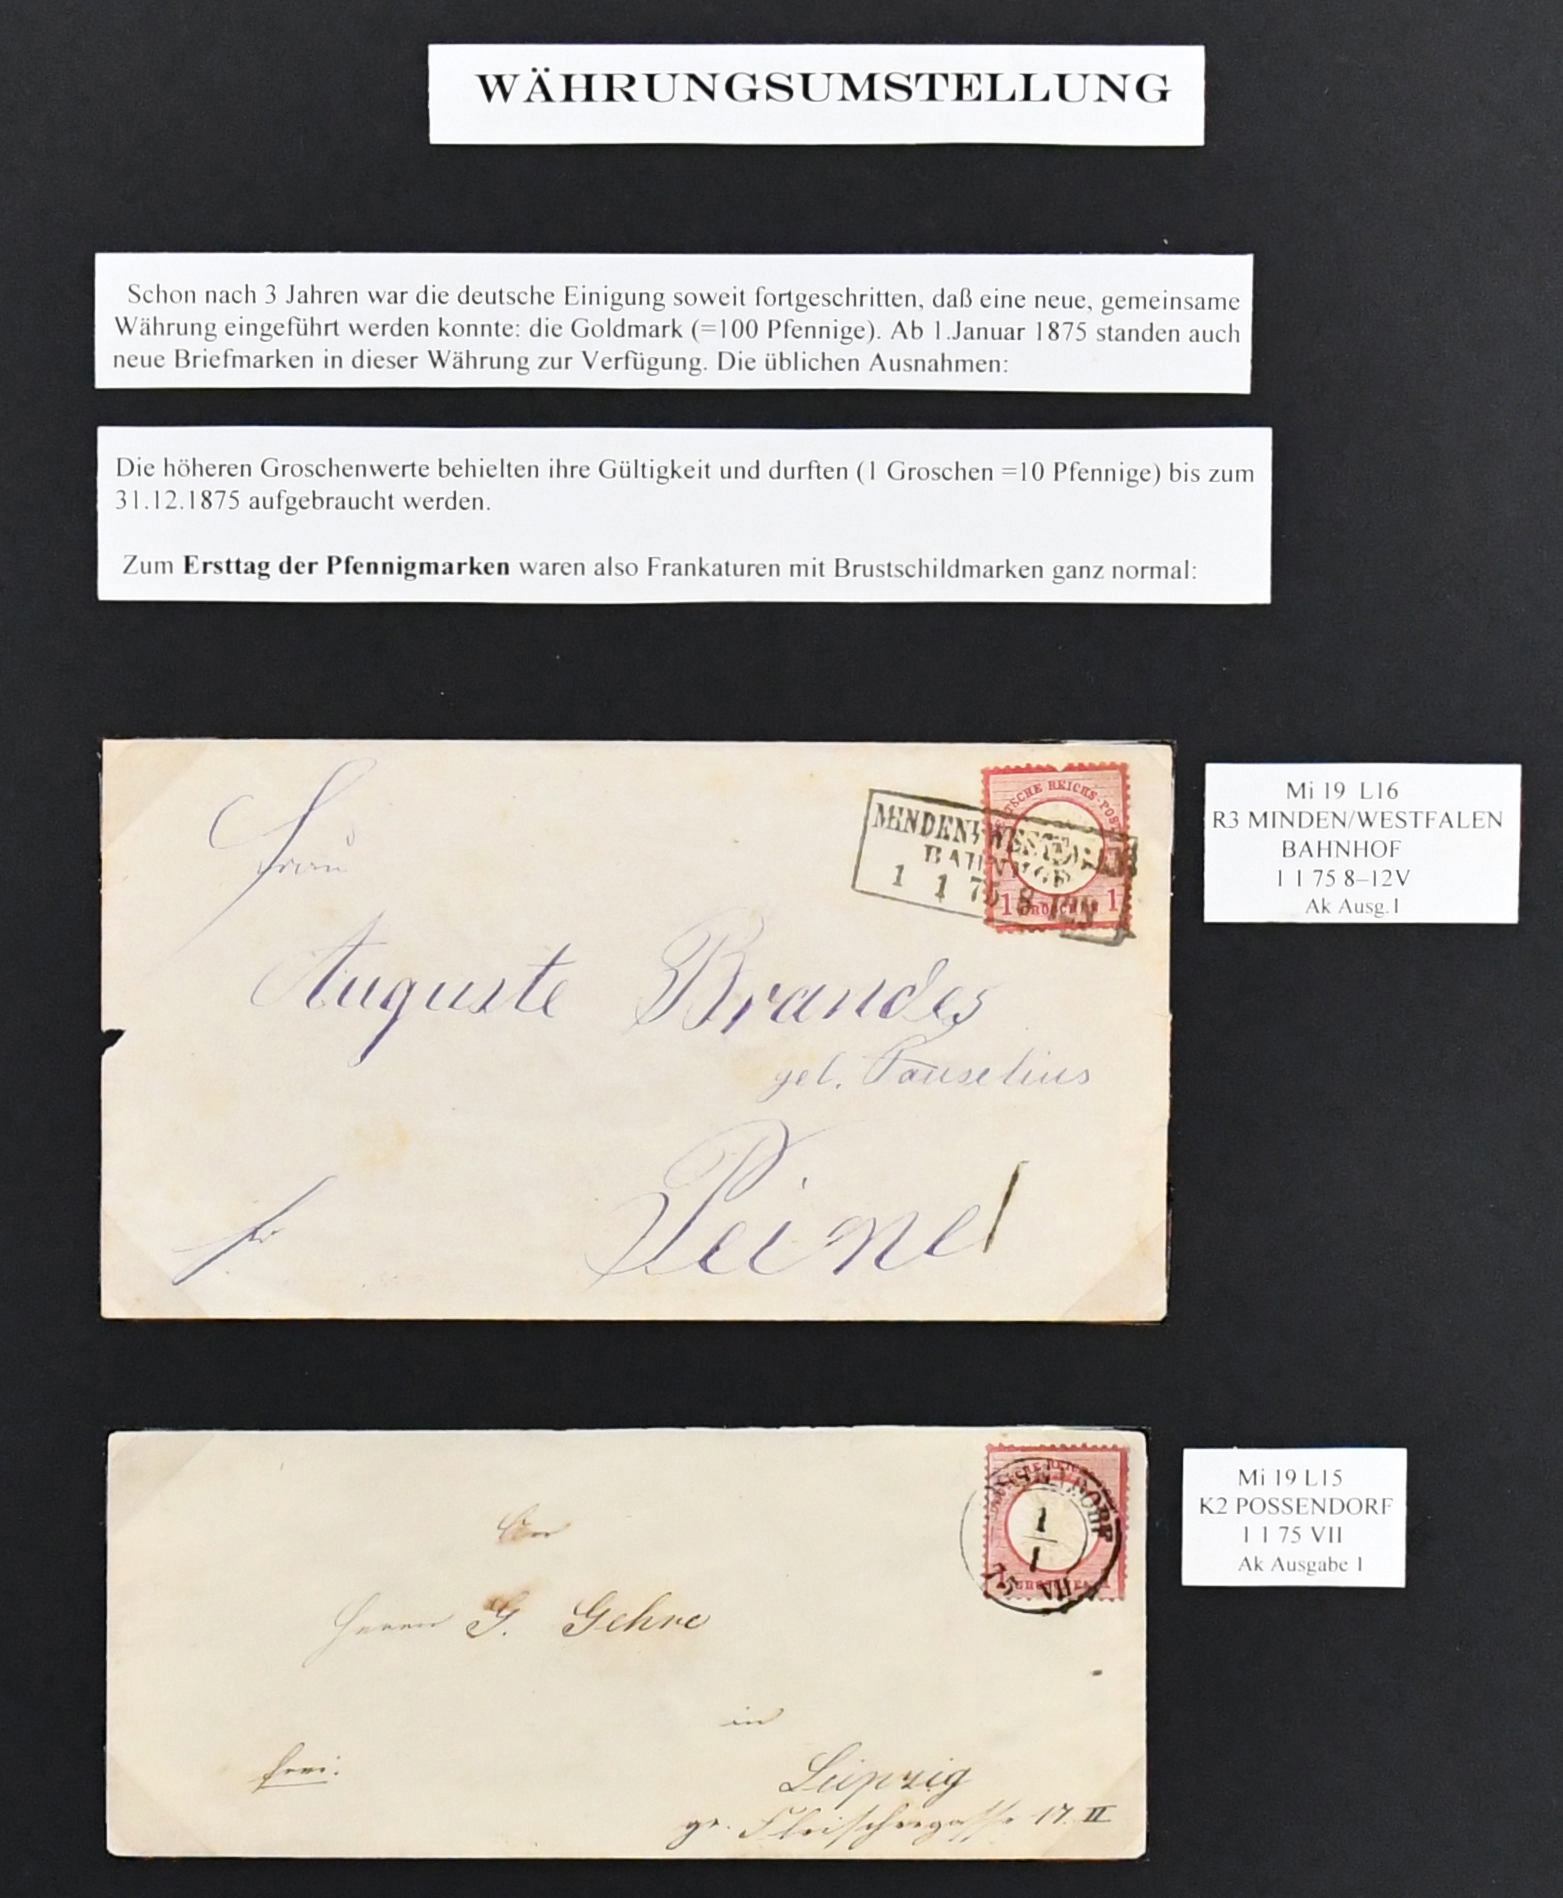 WÄHRUNGSUMSTELLUNG
Schon nach 3 Jahren war die deutsche Einigung soweit fortgeschritten, daß eine neue, gemeinsame
Währung eingeführt werden konnte: die Goldmark (=100 Pfennige). Ab 1.Januar 1875 standen auch
neue Briefmarken in dieser Währung zur Verfügung. Die üblichen Ausnahmen:
Die höheren Groschenwerte behielten ihre Gültigkeit und durften (1 Groschen =10 Pfennige) bis zum
31.12.1875 aufgebraucht werden.
Zum Ersttag der Pfennigmarken waren also Frankaturen mit Brustschildmarken ganz normal:
DEUTSCHE REICHS-POST
1 GROSCHEN 1
MINDEN/WESTFALEN
BAHNHOF
1 1 75 8-12V
Mi 19 L16
R3 MINDEN/WESTFALEN
BAHNHOF
1 1 75 8–12V
Ak Ausg.1
Frau
Auguste Brandes
Peine
POSSENDORF
1
1
75 VII
Mi 19 L15
K2 POSSENDORF
1 1 75 VII
Ak Ausgabe 1
Herrn G. Gehre
in
Leipzig
frei.
gr. Fleischergasse 17. II